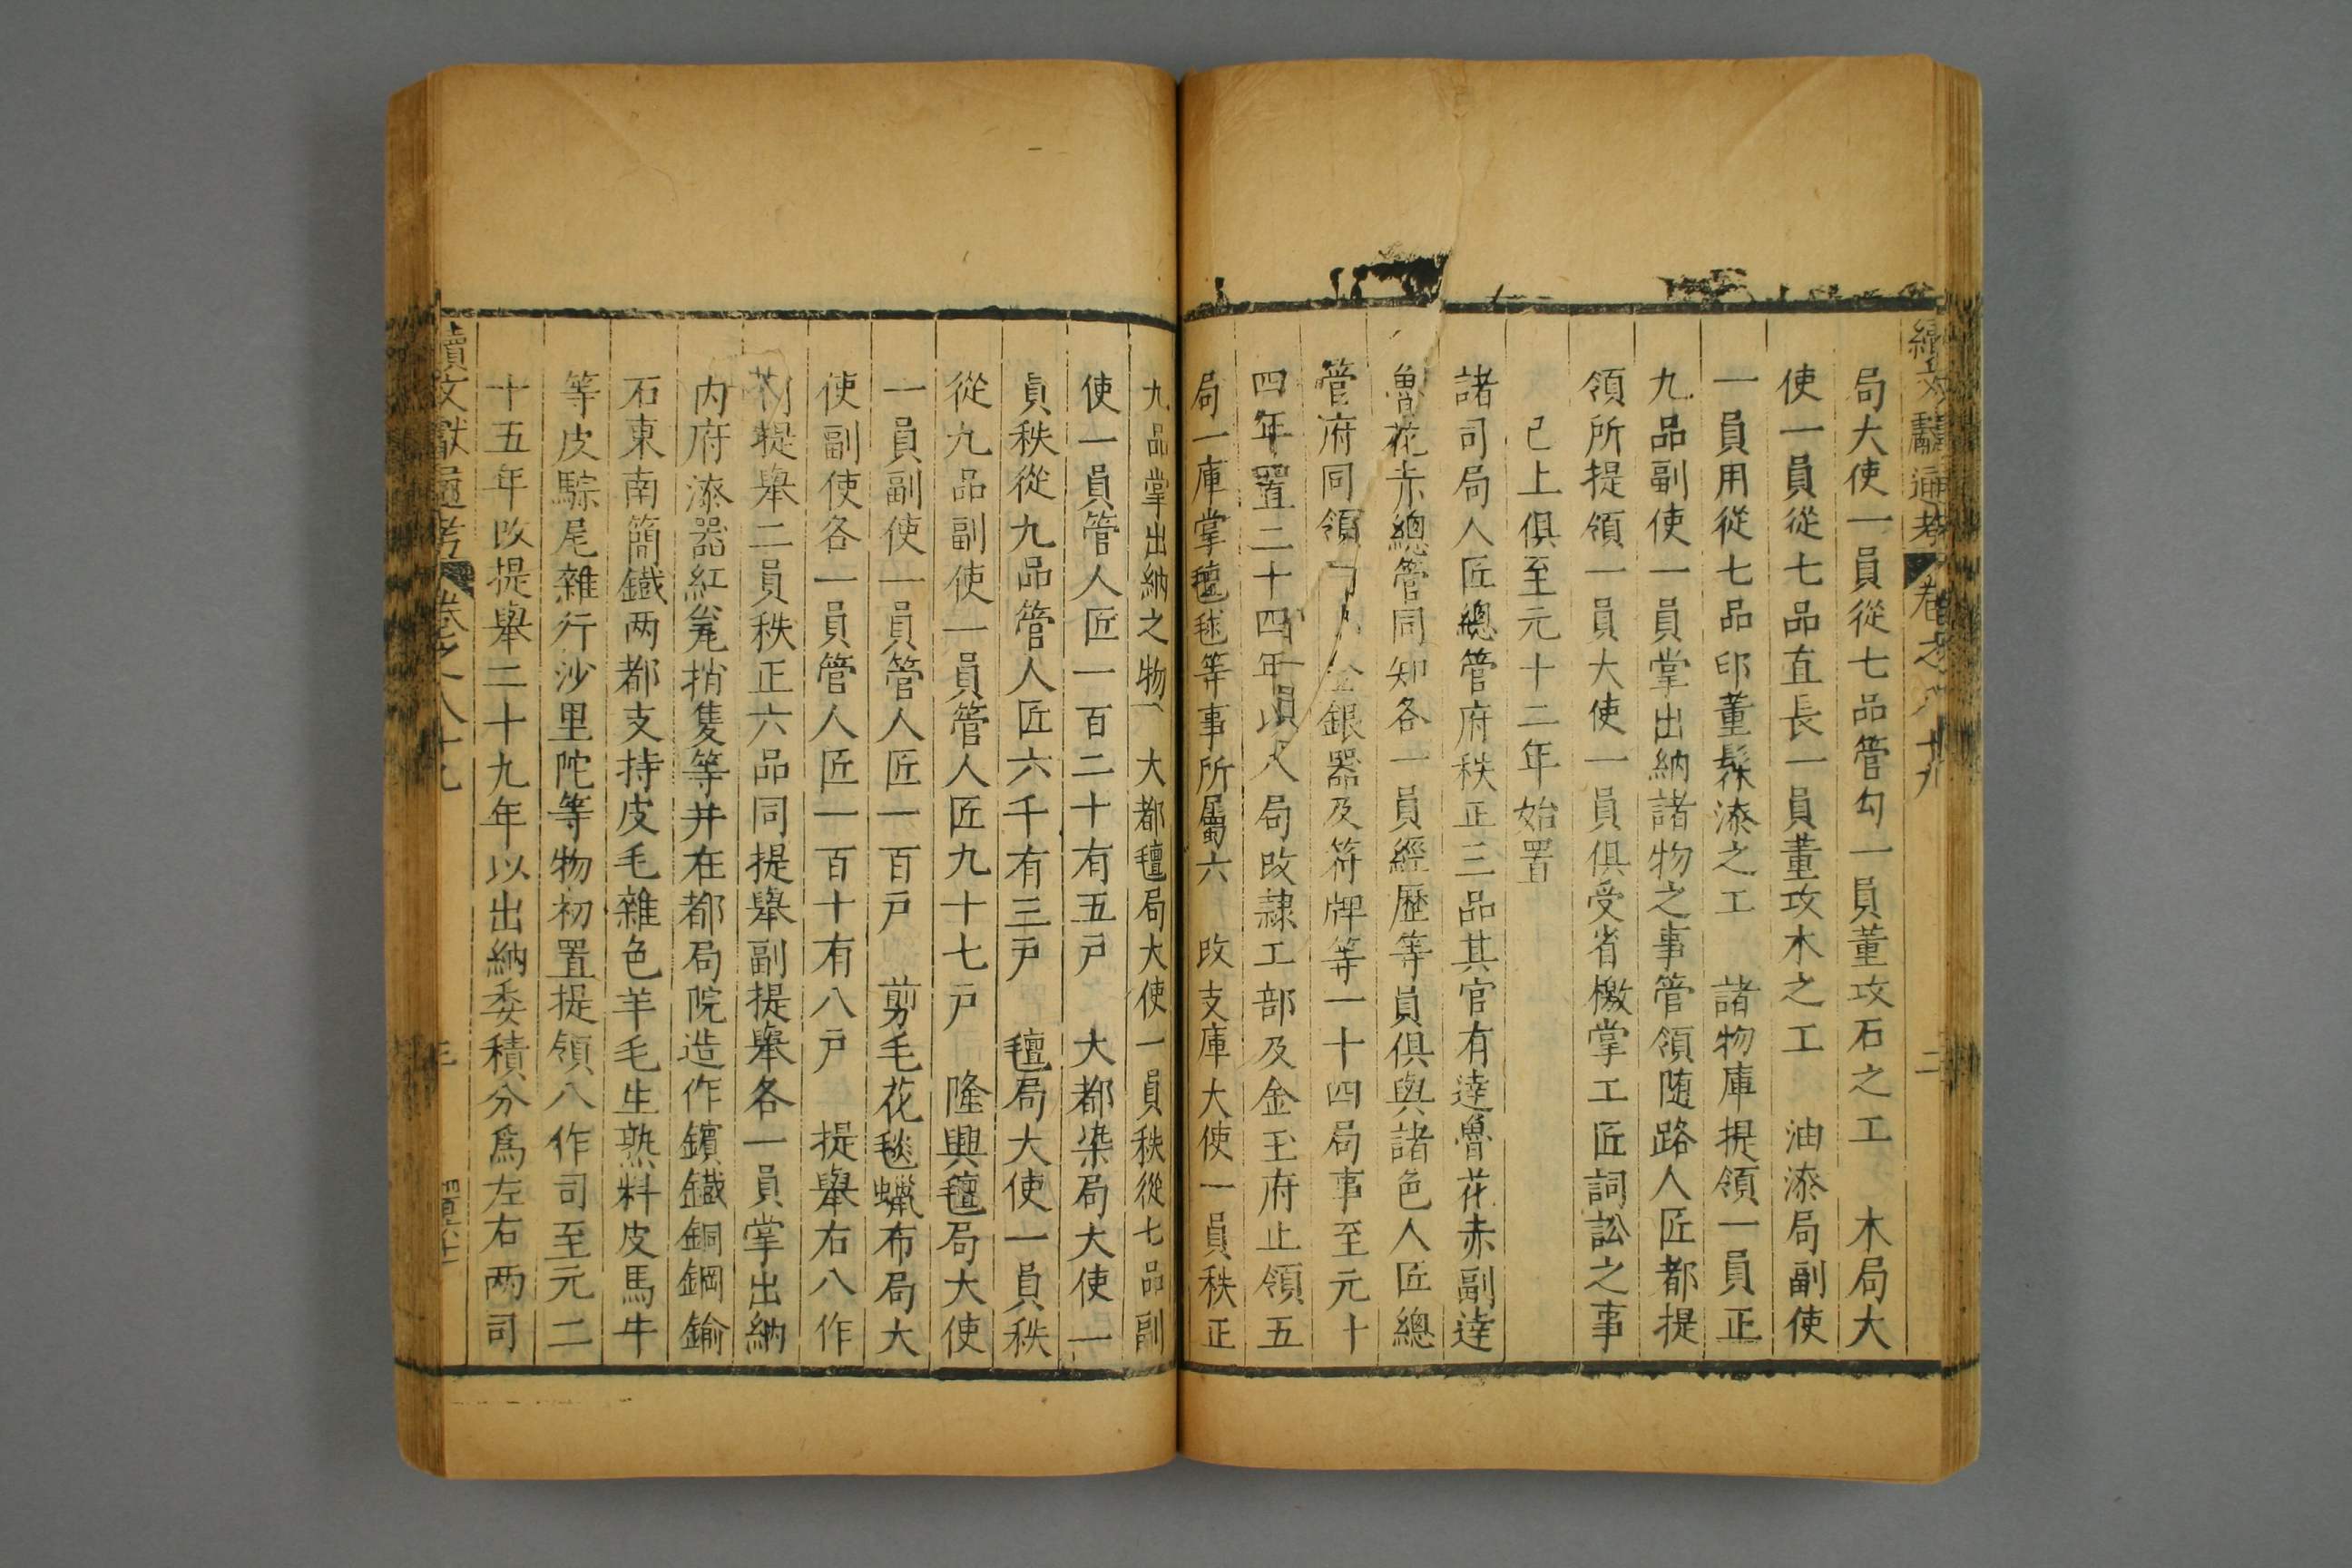 續文獻通考 卷之八十九 二
局大使一員從七品管勾一員董攻石之工 木局大
使一員從七品直長一員董攻木之工 油漆局副使
一員用從七品印董髹漆之工 諸物庫提領一員正
九品副使一員掌出納諸物之事管領随路人匠都提
領所提領一員大使一員俱受省檄掌工匠詞訟之事
已上俱至元十二年始置
諸司局人匠總管府秩正三品其官有達魯花赤副達
魯花赤總管同知各一員經歷等員俱與諸色人匠總
管府同領 金銀器及符牌等一十四局事至元十
四年置二十四年 以八局改隷工部及金玉府止領五
局一庫掌氊毬等事所屬六 改支庫大使一員秩正
九品掌出納之物 大都氊局大使一員秩從七品副
使一員管人匠一百二十有五戸 大都染局大使一
員秩從九品管人匠六千有三戸 氊局大使一員秩
從九品副使一員管人匠九十七戸 隆興氊局大使
一員副使一員管人匠一百戸 剪毛花毯蠟布局大
使副使各一員管人匠一百十有八戸 提舉右八作
司提舉二員秩正六品同提舉副提舉各一員掌出納
内府漆器紅瓮捎隻等并在都局院造作鑌鐵銅鋼鍮
石東南簡鐵两都支持皮毛雜色羊毛生熟料皮馬牛
等皮騌尾雜行沙里陀等物初置提領八作司至元二
十五年改提舉二十九年以出納委積分爲左右两司
續文獻通考 卷之八十九 三